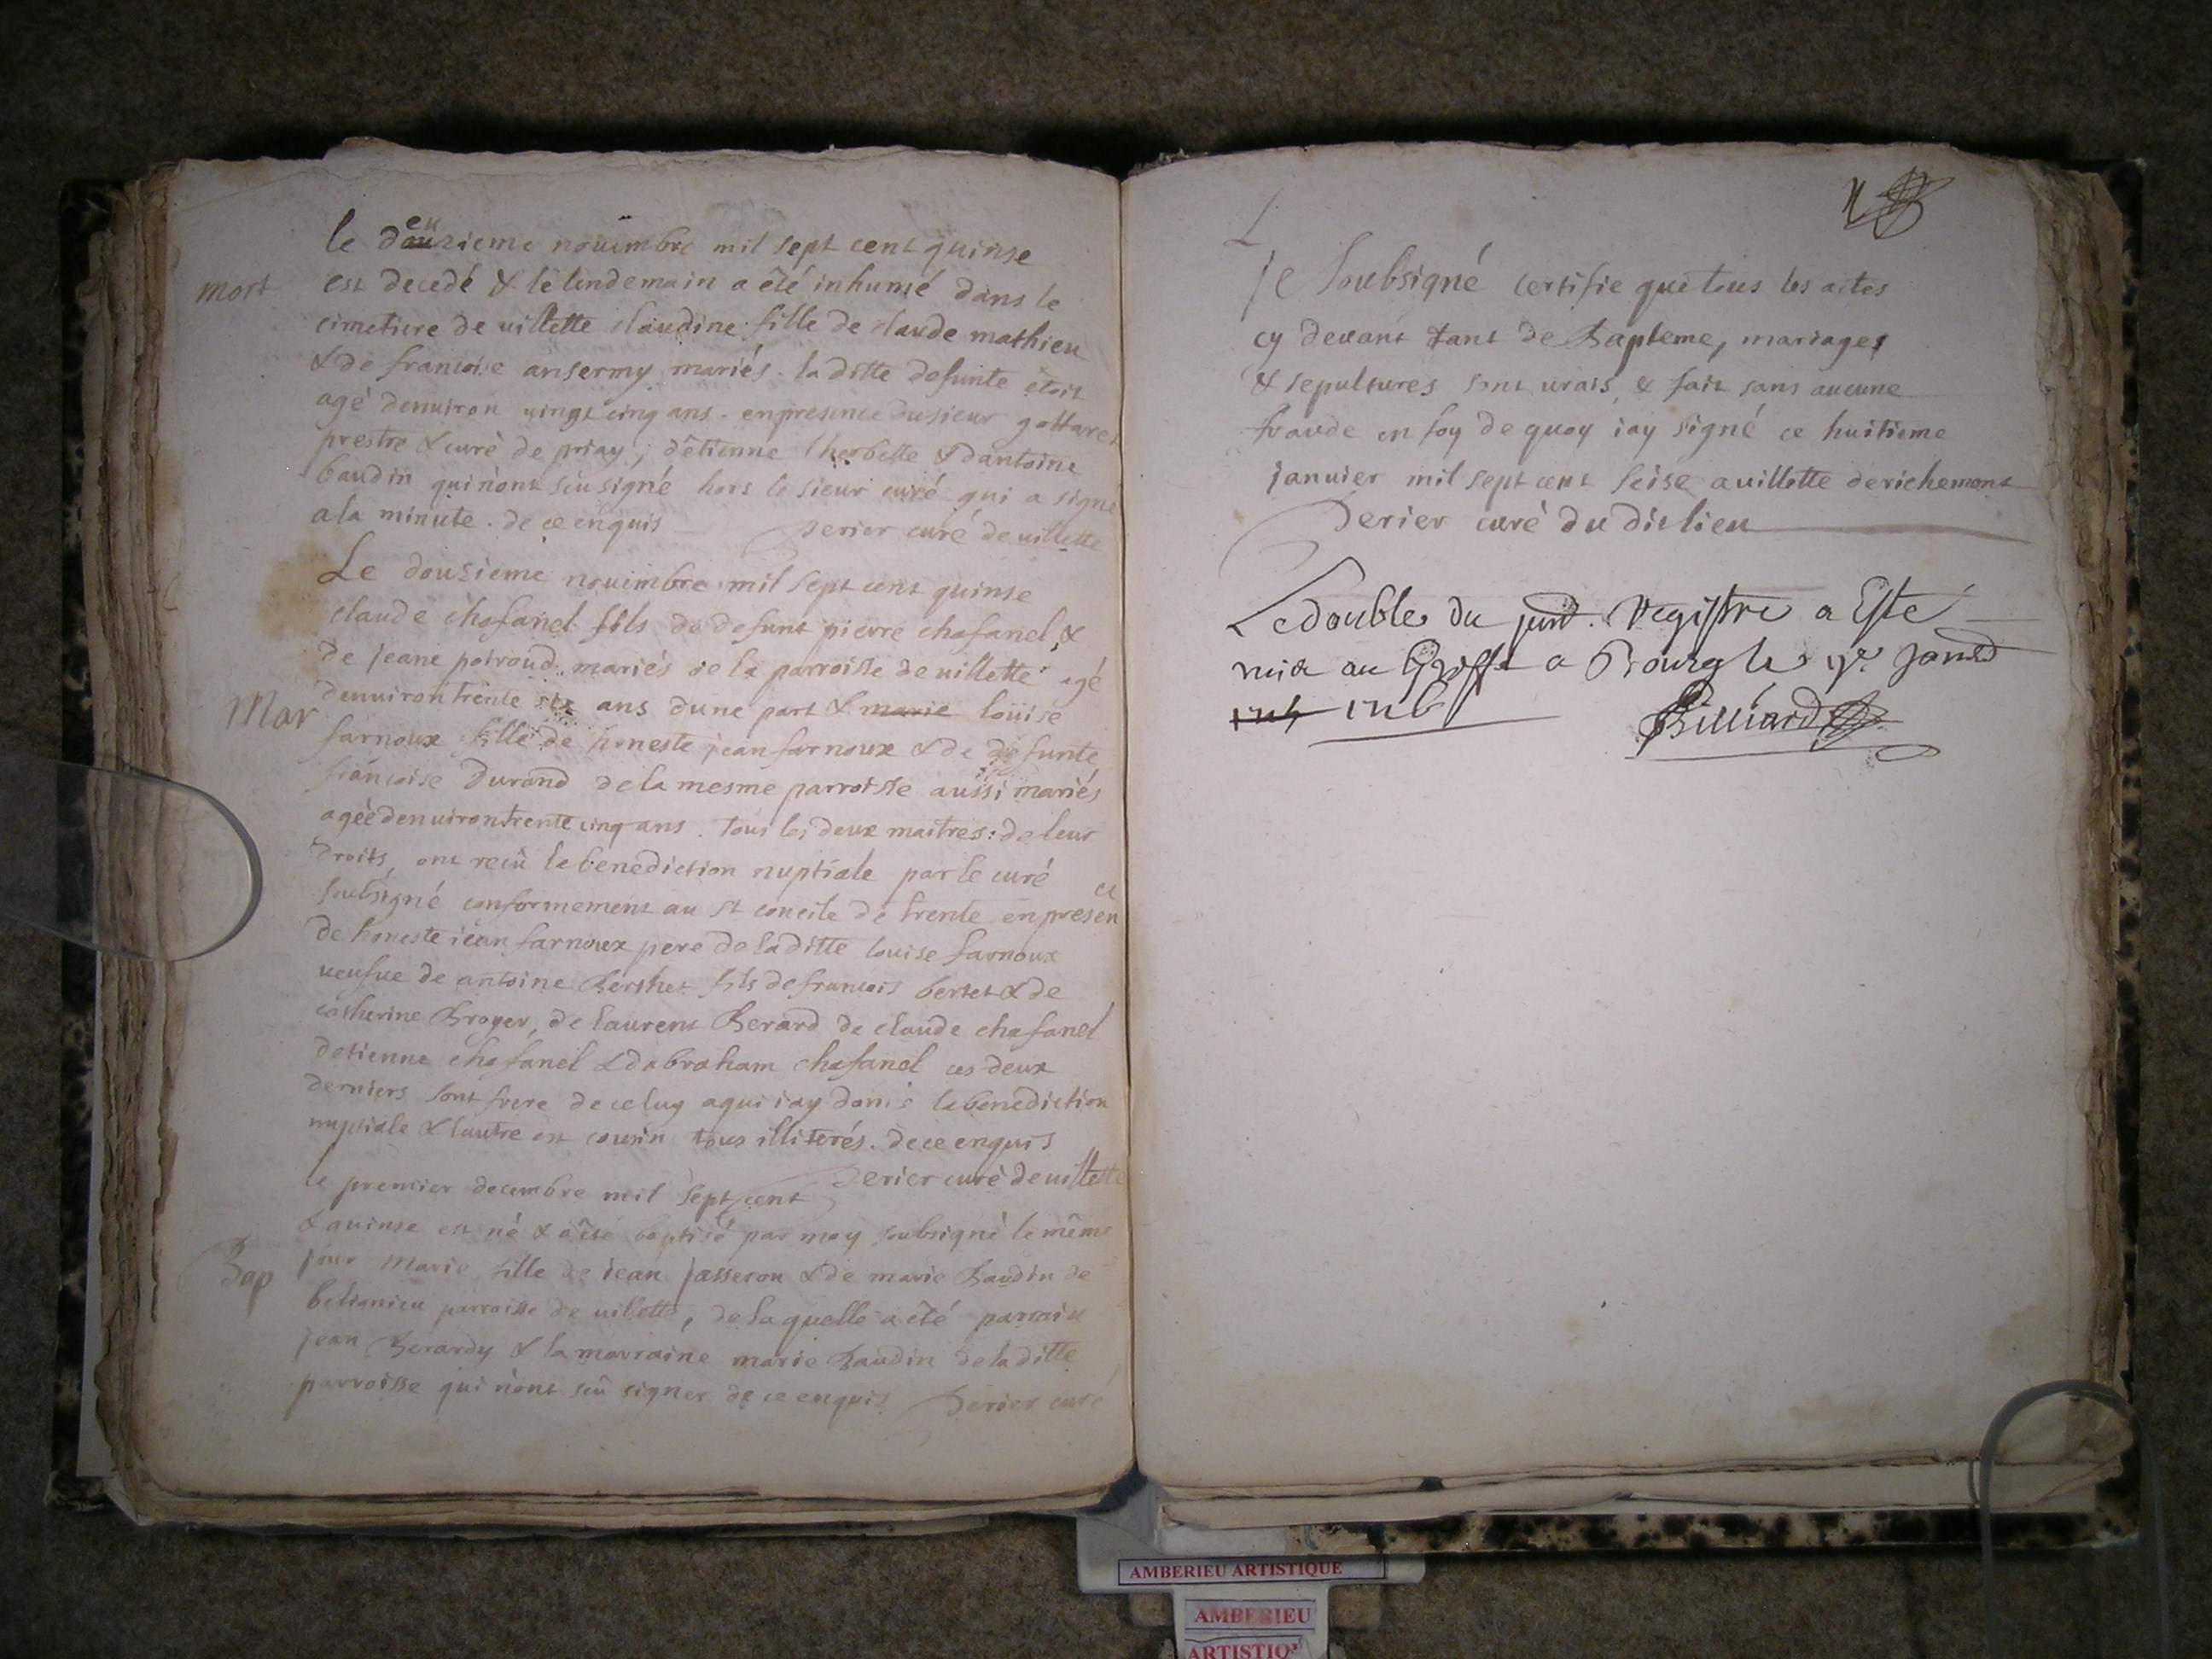 le deuzieme nouimbre mil sept cent quinse
mort
est decedé & le lendemain a êté inhumé dans le
cimetiere de uillette claudine fille de claude mathieu
& de francoise ansermy mariés. la ditte defunte êtoit
agé denuiron uingt cinq ans. en presence du sieur gottaret
prestre & curé de priay, dêtienne lherbette & dantoine
baudin qui nont sçu signé hors le sieur curé qui a signé
a la minute. de ce enquis
Derier curé de uillette
Le douzieme nouimbre mil sept cent quinse
claude chafanel fils de defunt pierre chafanel &
de jeane poiroud mariés de la parroisse de uillette agé
Mar
denuiron trente six ans dune part & marie loüise
farnoux fille de honeste jean farnoux & de defunte
francoise Durand de la mesme parroisse aussi mariés
agée denuiron trente cinq ans. tous les deux maitres de leur
droits, ont reçû la benediction nuptiale par le curé
soubsigné conformement au st concile de trente en presence
de honeste iean farnoux pere de laditte louise farnoux
ueufue de antoine Berthet fils de francois bertet & de
catherine Broyer, de laurent Berard de claude chafanel
detienne chafanel & dabraham chafanel ces deux
derniers sont frere de celuy a qui iay donné la benediction
nuptiale & lautre est cousin tous illiterés. de ce enquis
Derier curé de uillette
le premier decembre mil sept cent
& quinse est né & a êté baptisé par moy soubsigné le même
Bap
jour Marie fille de iean jasseron & de marie Baudin de
belignieu parroisse de uillette, de laquelle a êté parrain
jean Berardy & la marraine marie Baudin de laditte
parroisse qui n'ont sçû signer de ce enquis
Derier curé
je soubsigné certifie que tous les actes
cy deuant tant de Bapteme, mariages
& sepultures sont urais & fait sans aucune
fraude en foy de quoy iay signé ce huitieme
januier mil sept cent seise a uillette de richemont
Derier curé du dit lieu
Le double du pnt. Registre a Esté
mis au Greffe a Bourg le
1716
Billiard
AMBERIEU ARTISTIQUE
AMBERIEU
ARTISTIQ